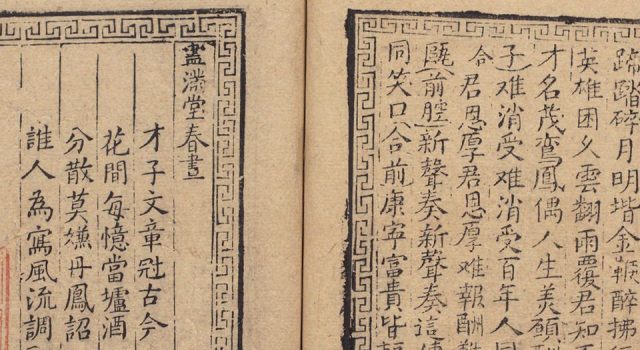 蹄踏碎月明堦金鞭醉拂
英雄困乆雲翻雨覆君知
才名茂鸞鳳偶人生美願
子难消受难消受百年人
合君恩厚君恩厚难報酬
甌前腔新聲奏新聲奏這
同笑口合前康寧富貴皆
滿堂春晝
才子文章冠古今
花間每憶當壚酒
分散莫嫌丹鳳詔
誰人為寫風流調